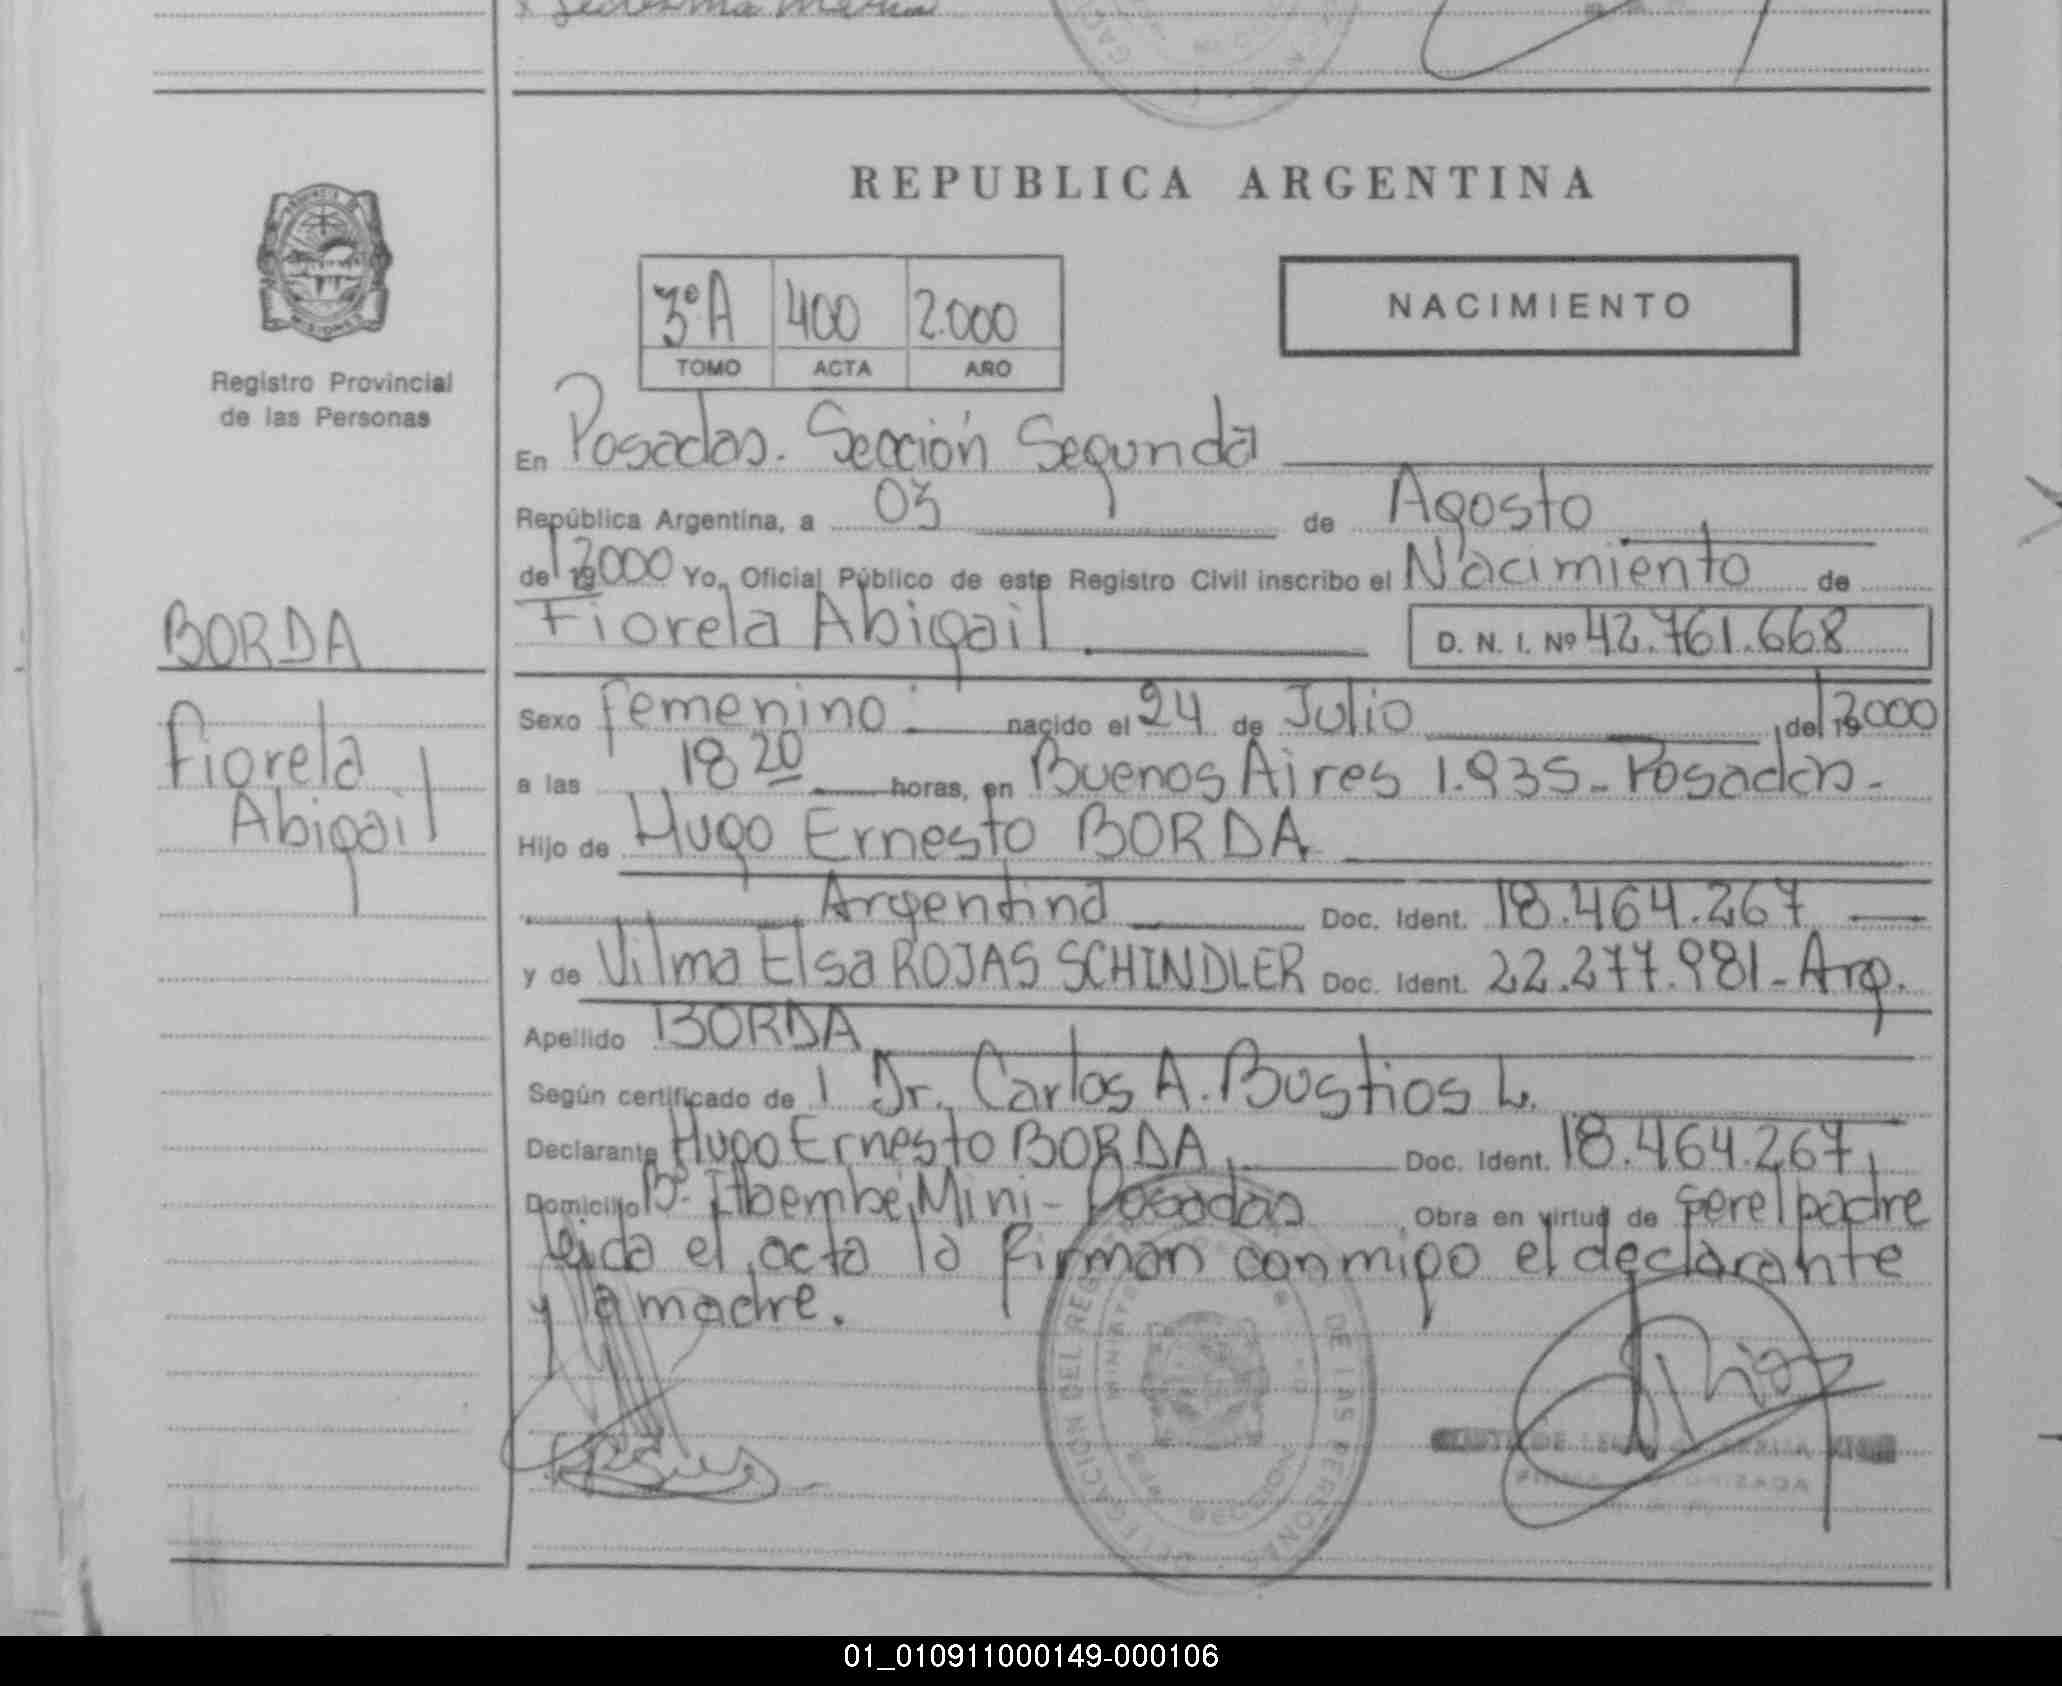 REPUBLICA ARGENTINA
PROVINCIA DE
MISIONES
Registro Provincial
de las Personas
3º A 400 2.000
TOMO ACTA AÑO
NACIMIENTO
En Posadas. Sección Segunda
República Argentina, a 03 de Agosto
de 19 2000 Yo, Oficial Público de este Registro Civil inscribo el Nacimiento de
Fiorela Abigail D. N. I. Nº 42.761.668
BORDA
Fiorela
Abigail
Sexo femenino nacido el 24 de Julio de 19 2000
a las 18 20 horas, en Buenos Aires 1.935 - Posadas -
Hijo de Hugo Ernesto BORDA
Argentina Doc. Ident. 18.464.267
y de Vilma Elsa ROJAS SCHINDLER Doc. Ident. 22.277.981 - Arg.
Apellido BORDA
Según certificado de Dr. Carlos A. Bustios L.
Declarante Hugo Ernesto BORDA Doc. Ident. 18.464.267
Domicilio Bº Itaembé Mini - Posadas Obra en virtud de ser el padre
leida el acta la firman conmigo el declarante
y la madre.
DELEGACION DEL REGISTRO DE LAS PERSONAS
SECCION
01_010911000149-000106